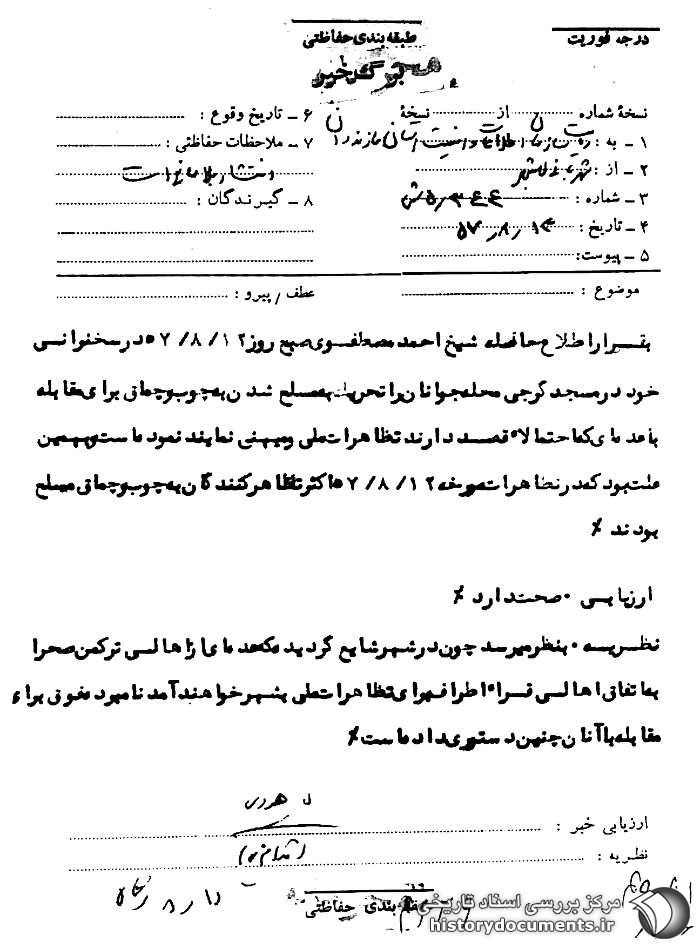 درجه فوریت
طبقه بندی حفاظتی
برگ خبر
نسخهٔ شماره از نسخهٔ
۱ ـ به :
۲ ـ از :
۳ ـ شماره :
۴ ـ تاریخ : ۵۷٫۸٫۱۳
۵ ـ پیوست:
۶ ـ تاریخ وقوع :
۷ ـ ملاحظات حفاظتی :
۸ ـ گیرندگان :
موضوع :
عطف / پیرو :
بقرار اطلاع حاصله شیخ احمد مصطفوی صبح روز ۱۲/ ۸/ ۵۷ در سخنرانسی
خود در مسجد گرجی محله جوانان را تحریک به مسلح شدن به چوب و چماق برای مقابله
با عده ای که احتمالا" قصد دارند تظاهرات ملی و میهنی نمایند نموده است و بهمین
علت بود که در تظاهرات مورخه ۱۲/ ۸/ ۵۷ اکثر تظاهر کنندگان به چوب و چماق مسلح
بودند ٪
ارزیابی ۰ صحت دارد ٪
نظریه ۰ بنظر میرسد چون در شهر شایع گردیده که عده ای از اهالی ترکمن صحرا
به اتفاق اهالی قراء اطراف برای تظاهرات ملی بشهر خواهند آمد نامبرده فوق برای
مقابله با آنان چنین دستوری داده است ٪
ارزیابی خبر :
نظریه :
طبقه بندی حفاظتی
مرکز بررسی اسناد تاریخی
historydocuments.ir